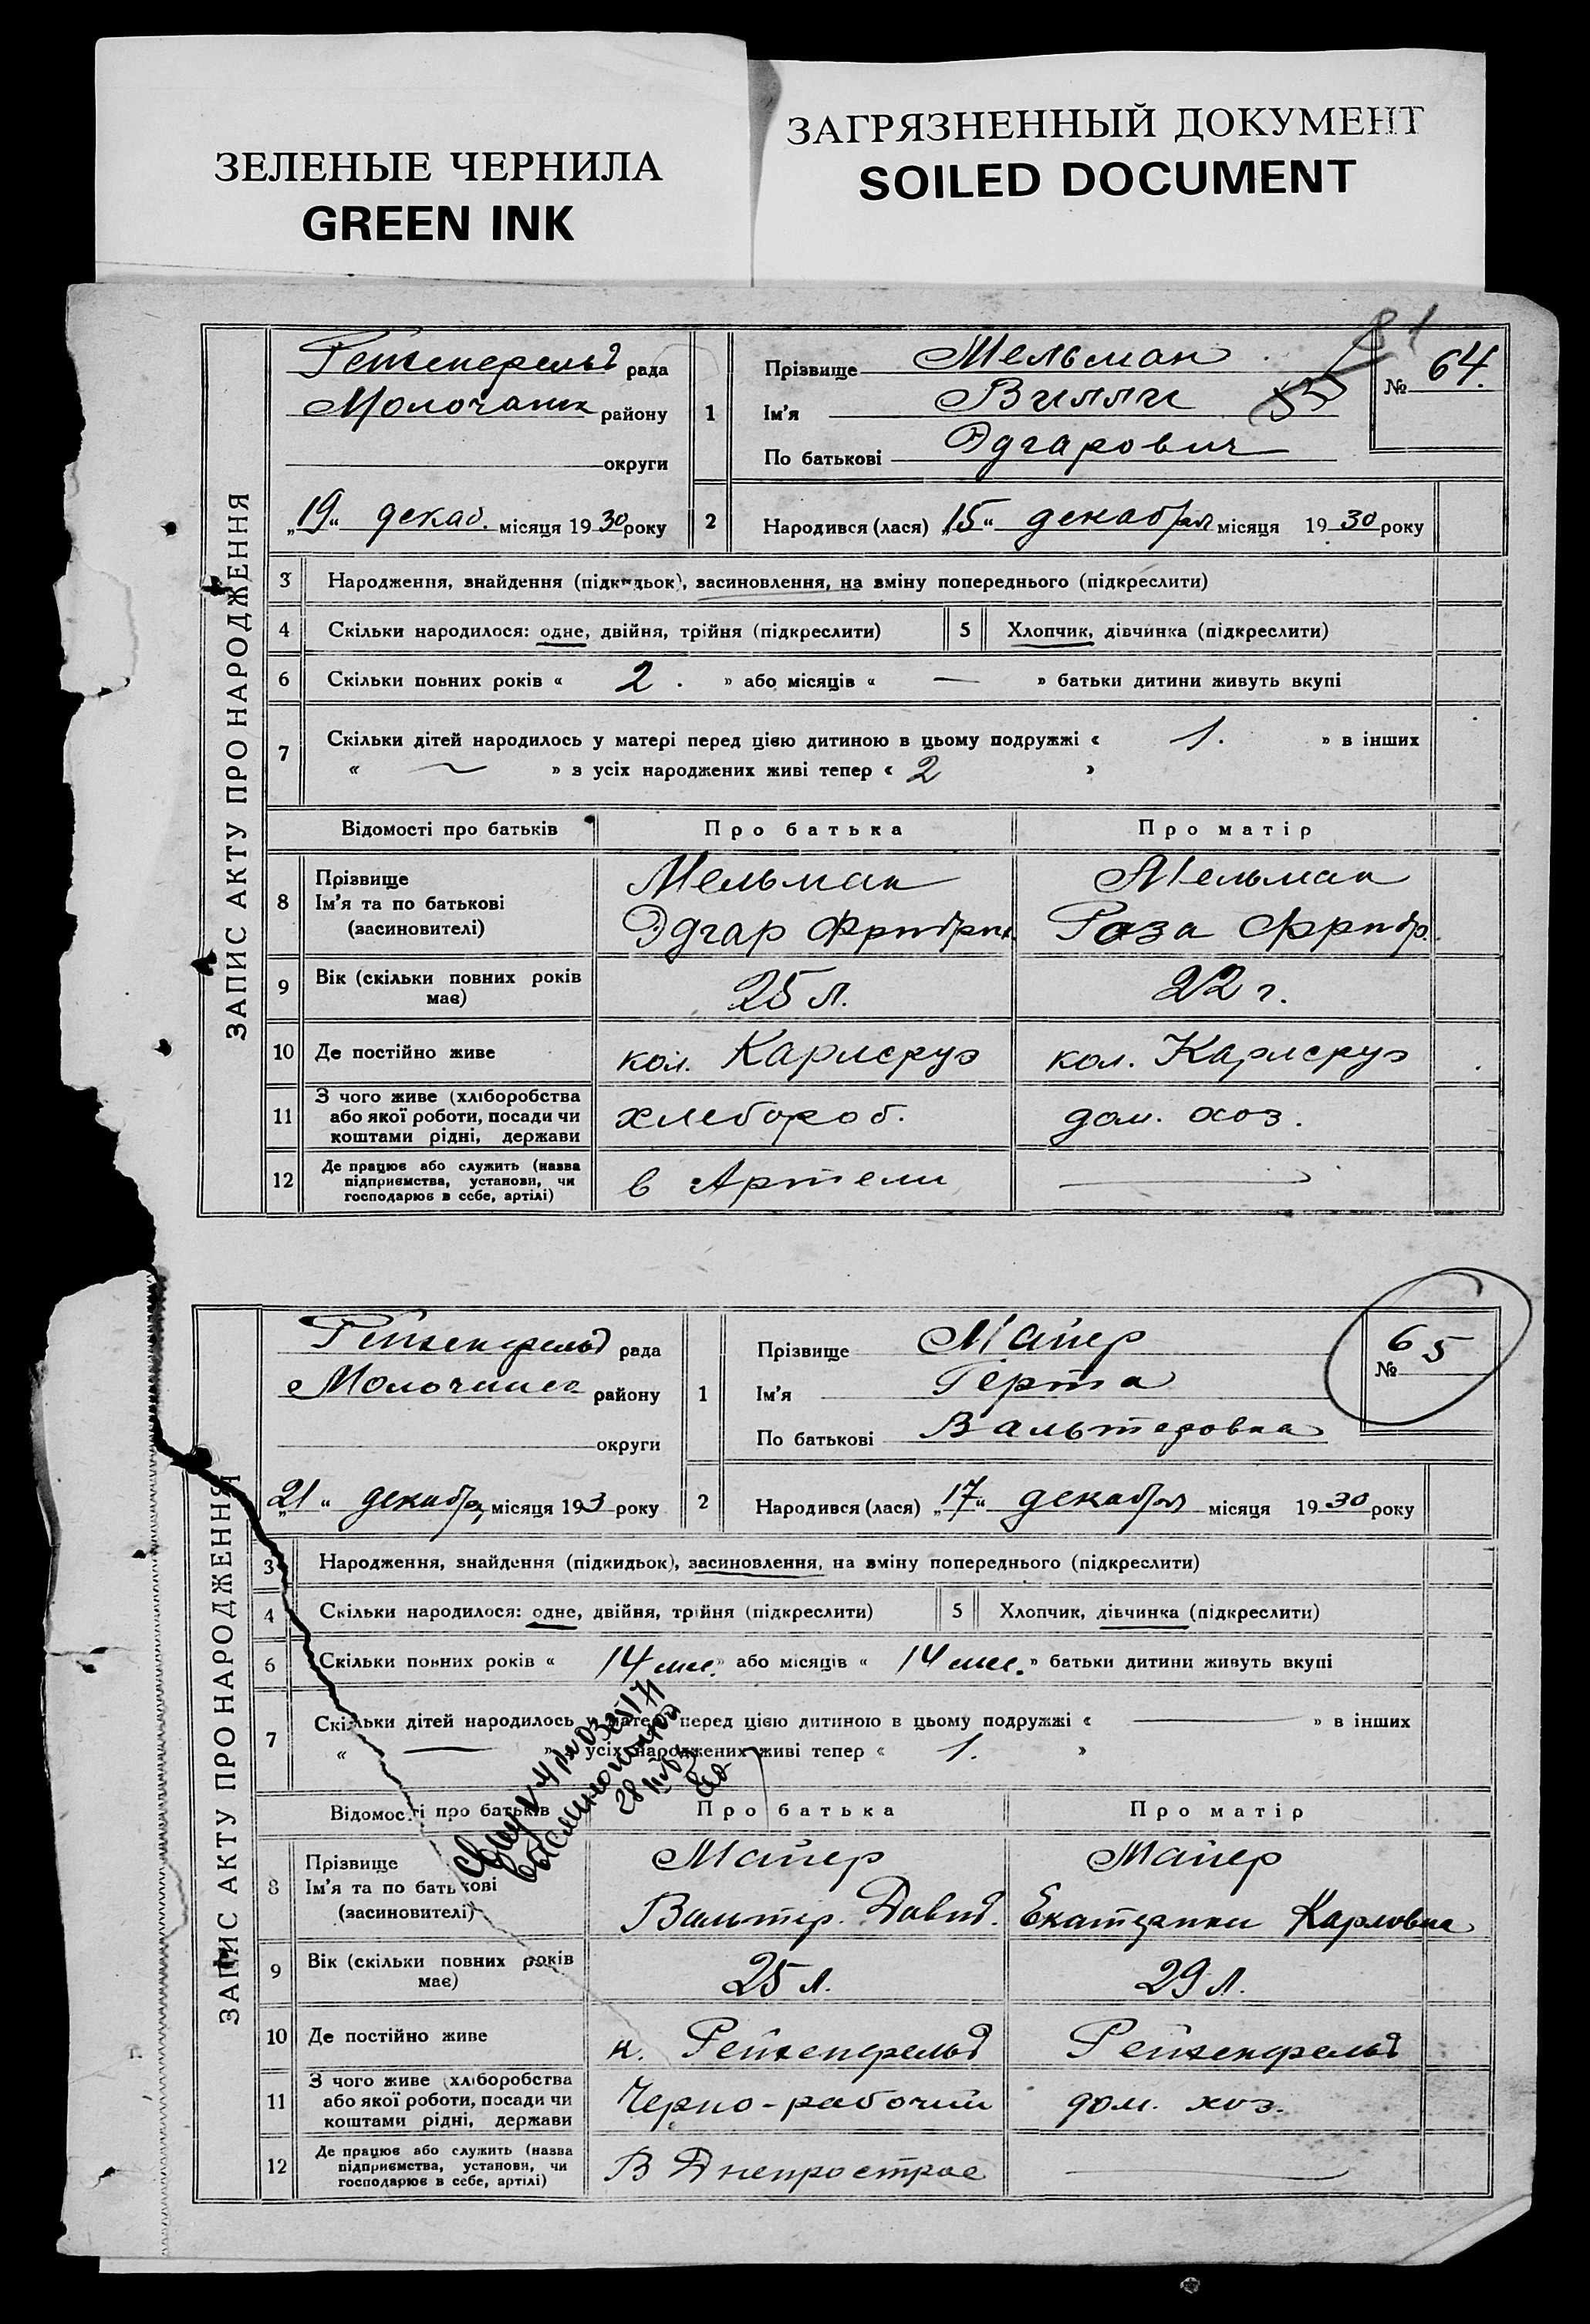 ЗЕЛЕНЫЕ ЧЕРНИЛА
GREEN INK
ЗАГРЯЗНЕННЫЙ ДОКУМЕНТ
SOILED DOCUMENT
81
ЗАПИС АКТУ ПРО НАРОДЖЕННЯ
Рейхенфельд рада
Молочанск району
округи
„19“ декаб. місяця 1930 року
1
Прізвище Мельман
Ім'я Вилли
По батькові Эдгарович
№ 64.
2 Народився (лася) „15“ декабря місяця 1930 року
3 Народження, знайдення (підкидьок), засиновлення, на зміну попереднього (підкреслити)
4 Скільки народилося: одне, двійня, трійня (підкреслити) 5 Хлопчик, дівчинка (підкреслити)
6 Скільки повних років « 2 . » або місяців « — » батьки дитини живуть вкупі
7 Скільки дітей народилось у матері перед цією дитиною в цьому подружжі « 1. » в інших
« — » з усіх народжених живі тепер « 2 »
Відомості про батьків Про батька Про матір
8 Прізвище Мельман Мельман
Ім'я та по батькові
(засновителі) Эдгар Фридрих. Роза Фридр.
9 Вік (скільки повних років має) 25 л. 22 г.
10 Де постійно живе кол. Карлсруэ кол. Карлсруэ
11 З чого живе (хліборобства
або якої роботи, посади чи
коштами рідні, держави хлебороб. дом. хоз.
12 Де працює або служить (назва
підприємства, установи, чи
господарює в себе, артілі) в Артели —
ЗАПИС АКТУ ПРО НАРОДЖЕННЯ
Рейхенфельд рада
Молочанск району
округи
„21“ декабря місяця 193 року
1
Прізвище Майер
Ім'я Герта
По батькові Вальтеровна
№ 65
2 Народився (лася) „17“ декабря місяця 1930 року
3 Народження, знайдення (підкидьок), засиновлення, на зміну попереднього (підкреслити)
4 Скільки народилося: одне, двійня, трійня (підкреслити) 5 Хлопчик, дівчинка (підкреслити)
6 Скільки повних років « 14 мес. » або місяців « 14 мес. » батьки дитини живуть вкупі
7 Скільки дітей народилось у матері перед цією дитиною в цьому подружжі « — » в інших
« — » з усіх народжених живі тепер « 1. »
Відомості про батьків Про батька Про матір
8 Прізвище Майер Майер
Ім'я та по батькові
(засиновителі) Вальтер. Давид. Екатерина Карловна
9 Вік (скільки повних років має) 25 л. 29 л.
10 Де постійно живе к. Рейхенфельд Рейхенфельд
11 З чого живе (хліборобства
або якої роботи, посади чи
коштами рідні, держави Черно-рабочий дом. хоз.
12 Де працює або служить (назва
підприємства, установи, чи
господарює в себе, артілі) В Днепрострое —